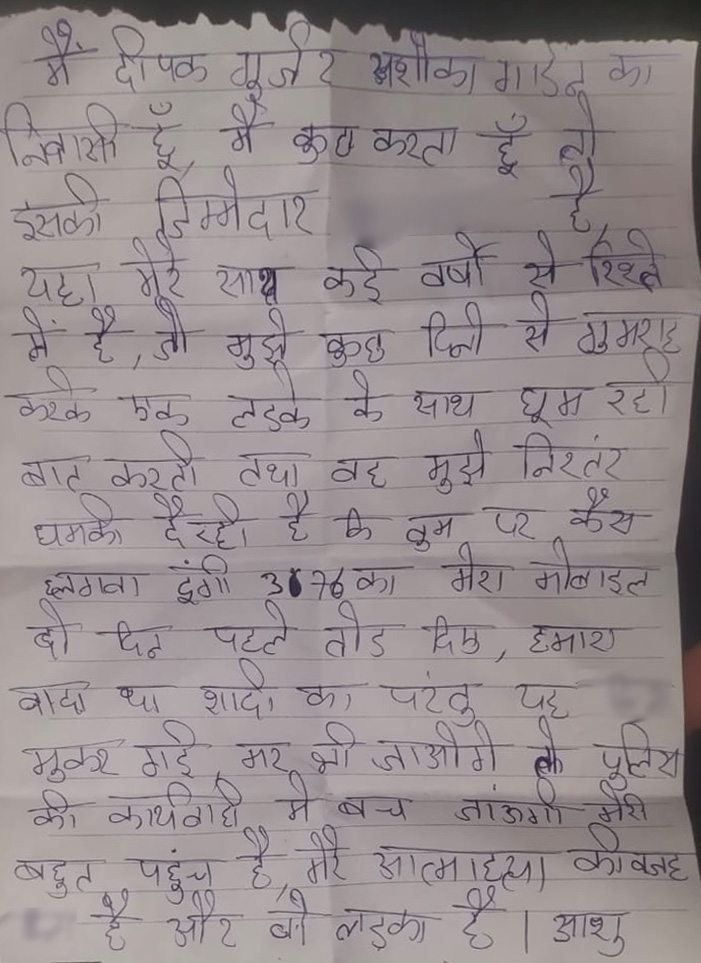 मैं दीपक गूर्जर अशोका गार्डन का
निवासी हूँ, मैं कुछ करता हूँ तो
इसकी जिम्मेदार है,
यहा मेरे साथ कई वर्षो से रिश्ते
में है, जो मुझे कुछ दिनो से गुमराह
करके एक लडके के साथ घूम रही
बात करती तथा वह मुझे निरतंर
धमकी दे रही है कि तुम पर कैस
लगवा दूंगी 376 का मेरा मोबाइल
दो दिन पहले तोड दिए, हमारा
वादा था शादी का परंतु यह
मुकर गई, मर भी जाओगे तो पुलिस
की कार्यवाही मे बच जांऊगी मेरी
बहुत पहुंच है, मेरे आत्माहत्या की वजह
है और वो लड़का है | आशु